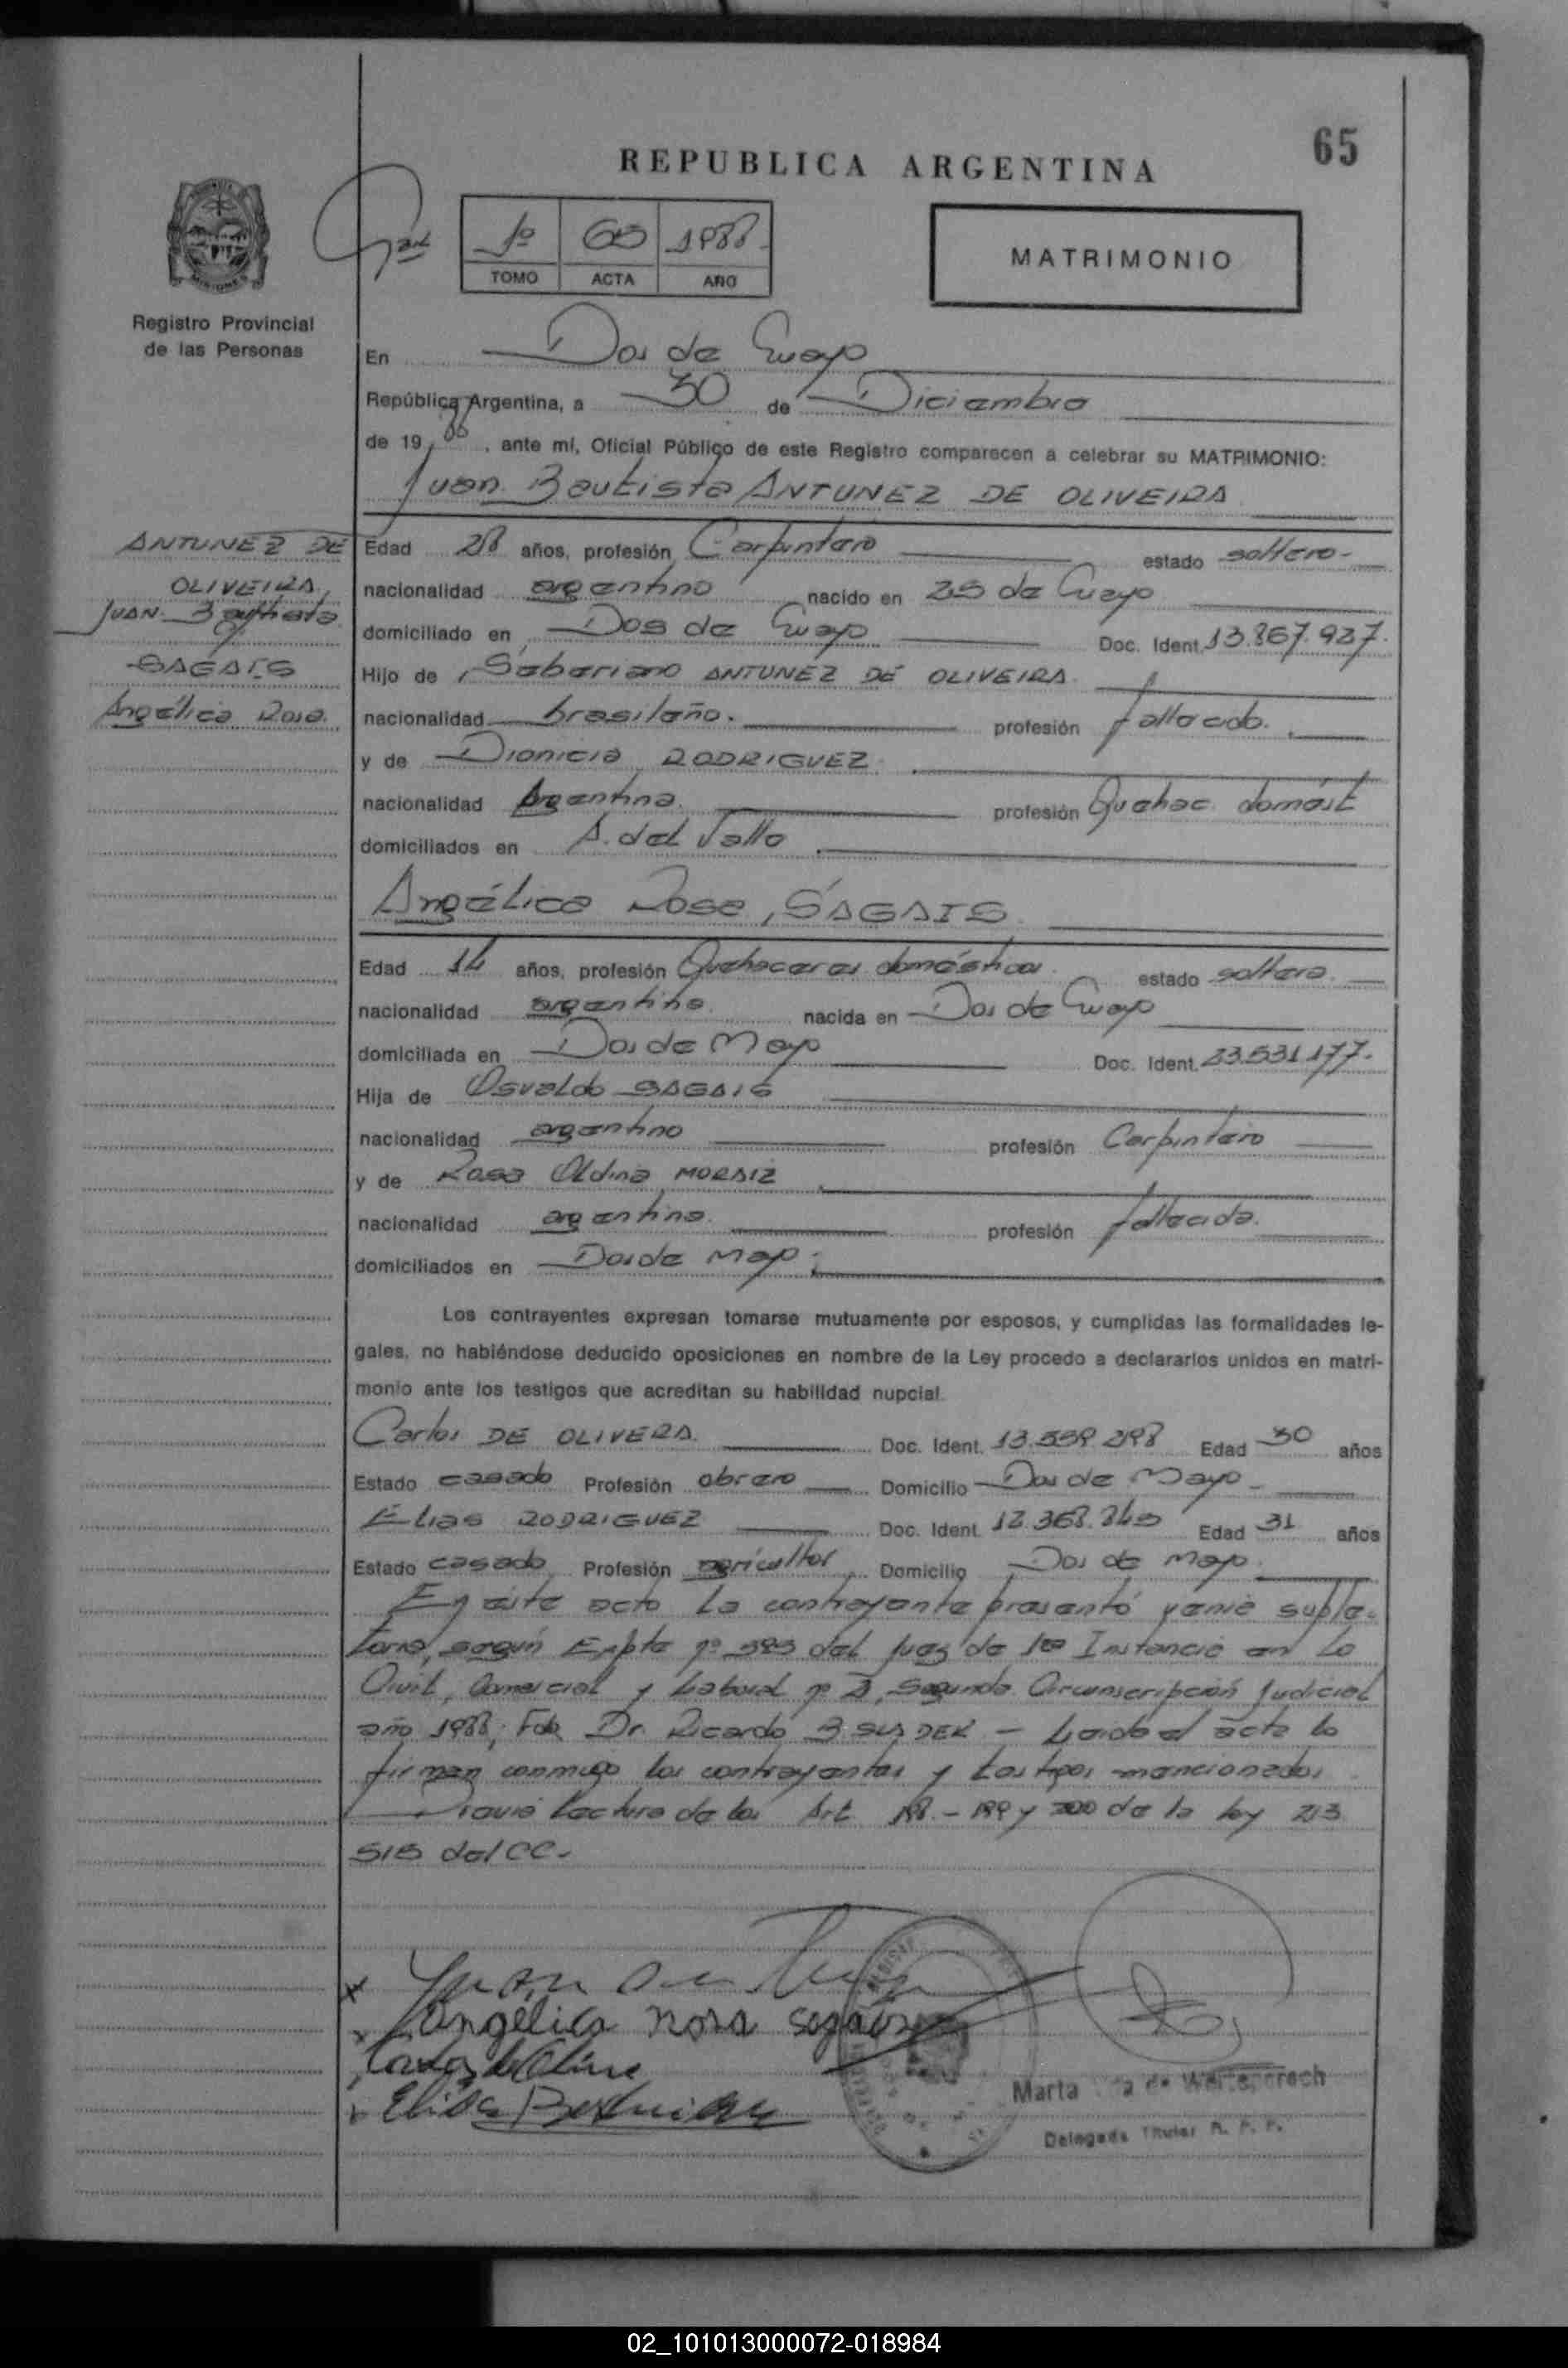 65
REPUBLICA ARGENTINA
1º 65 1988
TOMO ACTA AÑO
MATRIMONIO
MISIONES
Registro Provincial
de las Personas
En Dos de Mayo
República Argentina, a 30 de Diciembre
de 19 88, ante mí, Oficial Público de este Registro comparecen a celebrar su MATRIMONIO:
Juan Bautista ANTUNEZ DE OLIVEIRA
ANTUNEZ DE
OLIVEIRA,
JUAN Bautista
SAGAIS
Angélica Rosa.
Edad 28 años, profesión Carpintero estado soltero-
nacionalidad argentino nacido en 25 de Mayo
domiciliado en Dos de Mayo Doc. Ident. 13.867.927.
Hijo de Sabariano ANTUNEZ DE OLIVEIRA
nacionalidad brasileño. profesión fallecido.
y de Dionicia RODRIGUEZ
nacionalidad Argentina. profesión Quehac. domést
domiciliados en A. del Valle
Angélica Rosa, SAGAIS
Edad 14 años, profesión Quehaceres domésticos estado soltera
nacionalidad argentina. nacida en Dos de Mayo
domiciliada en Dos de Mayo Doc. Ident. 23.531.177.
Hija de Osvaldo SAGAIS
nacionalidad argentino profesión Carpintero
y de Rosa Oldina MORAIZ
nacionalidad argentina. profesión fallecida.
domiciliados en Dos de Mayo.
Los contrayentes expresan tomarse mutuamente por esposos, y cumplidas las formalidades le-
gales, no habiéndose deducido oposiciones en nombre de la Ley procedo a declararlos unidos en matri-
monio ante los testigos que acreditan su habilidad nupcial
Carlos DE OLIVERA Doc. Ident. 13.559.298 Edad 30 años
Estado casado Profesión obrero Domicilio Dos de Mayo-
Elias RODRIGUEZ Doc. Ident. 12.368. Edad 31 años
Estado casado Profesión agricultor Domicilio Dos de Mayo.
En este acto la contrayente presentó venia suple-
toria, según Expte nº 525 del Juez de 1ra Instancia en lo
Civil, Comercial y Laboral nº 2, Segunda Circunscripción Judicial
año 1988, Fdo. Dr. Ricardo B. — Leída el acta la
firman conmigo los contrayentes y testigos mencionados
Previa lectura de los Art. 198.- 199 y 200 de la ley 23
515 del CC.-
Juan
Angélica Rosa Sagais
Carlos de
Elias
Marta de
Delegada Titular R. P. P.
02_101013000072-018984